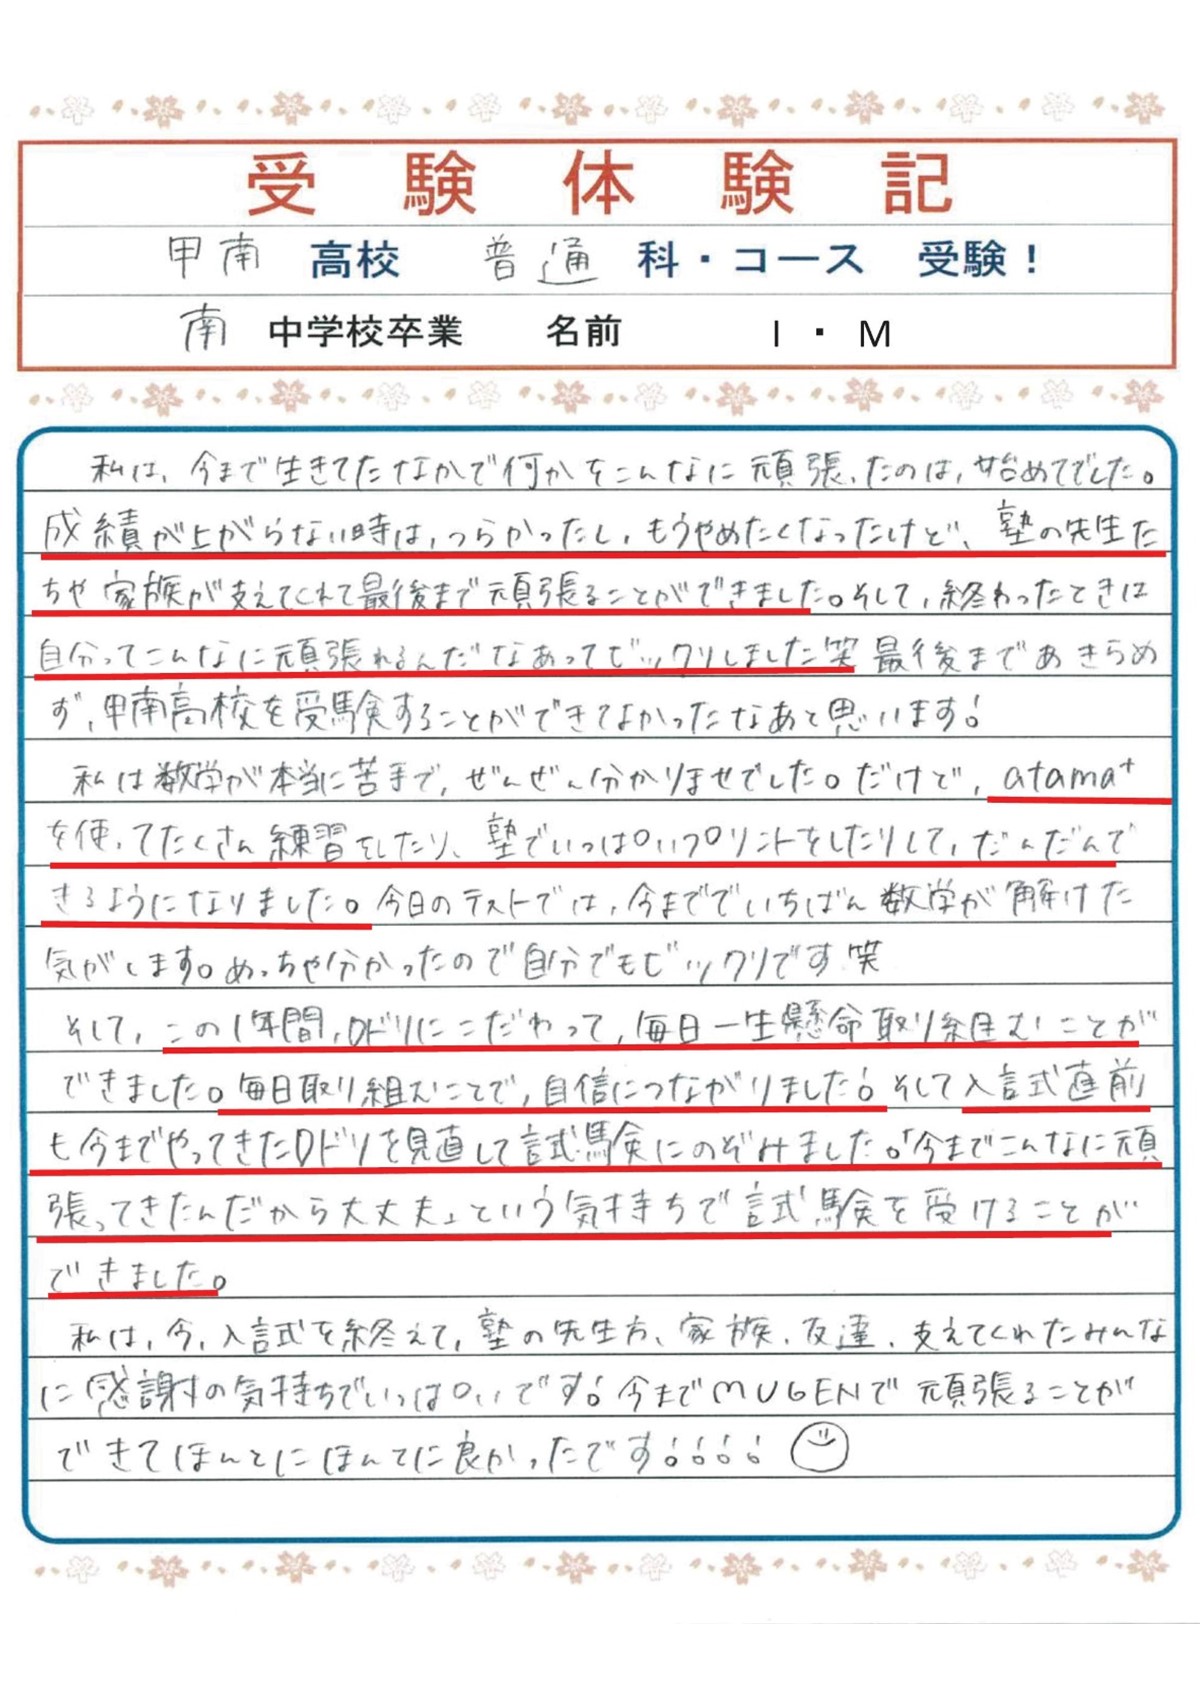 受験体験記
甲南 高校 普通 科・コース 受験！
南 中学校卒業 名前 I・M
私は、今まで生きてたなかで何かをこんなに頑張ったのは、始めてでした。
成績が上がらない時は、つらかったし、もうやめたくなったけど、塾の先生た
ちや家族が支えてくれて最後まで頑張ることができました。そして、終わったときは
自分ってこんなに頑張れるんだなあってビックリしました笑 最後まであきらめ
ず、甲南高校を受験することができてよかったなあと思います！
私は数学が本当に苦手で、ぜんぜん分かりませでした。だけど、atama+
を使ってたくさん練習をしたり、塾でいっぱいプリントをしたりして、だんだんで
きるようになりました。今日のテストでは、今まででいちばん数学が解けた
気がします。めっちゃ分かったので自分でもビックリです笑
そして、この1年間、Dドリにこだわって、毎日一生懸命取り組むことが
できました。毎日取り組むことで、自信につながりました！そして入試直前
も今までやってきたDドリを見直して試験にのぞみました。「今までこんなに頑
張ってきたんだから大丈夫」という気持ちで試験を受けることが
できました。
私は、今、入試を終えて、塾の先生方、家族、友達、支えてくれたみんな
に感謝の気持ちでいっぱいです！今までMUGENで頑張ることが
できてほんとにほんてに良かったです！！！！